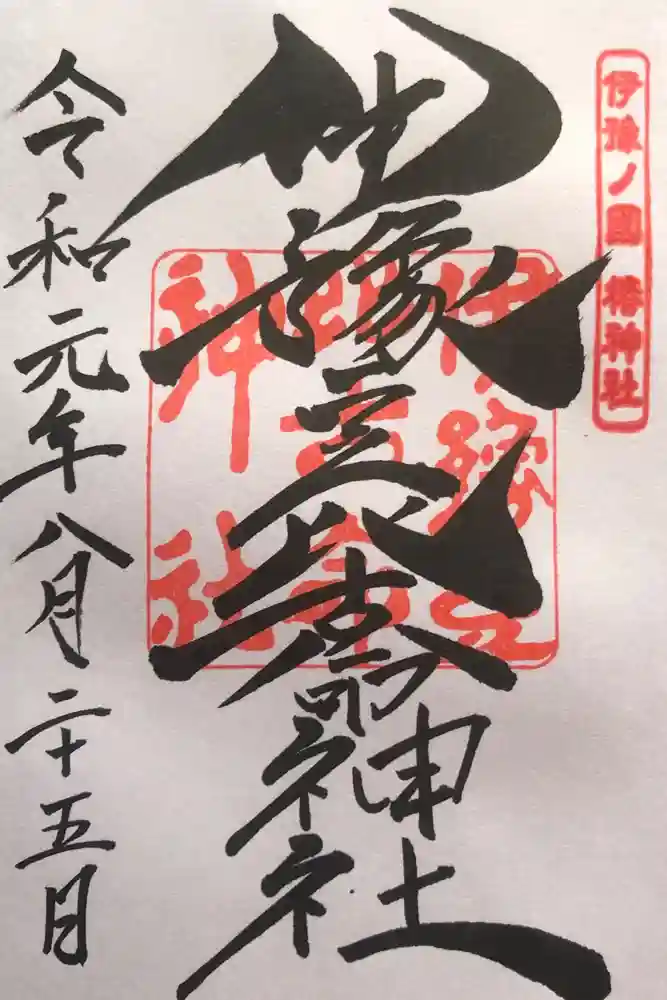 伊豫ノ國 椿神社
伊豫豆比古命神社
伊豫豆
比古命
神社
令和元年八月二十五日